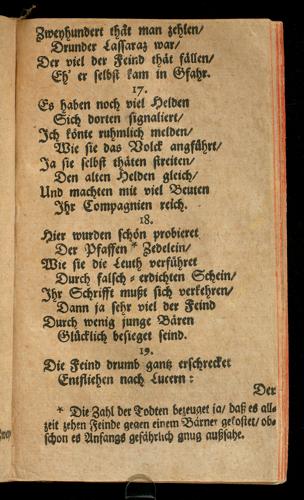 Zweyhundert thät man zehlen/
Drunder Lassaraz war/
Der viel der Feind thät fällen/
Eh' er selbst kam in Gfahr.
17.
Es haben noch viel Helden
Sich dorten signaliert/
Ich könte ruhmlich melden/
Wie sie das Volck angführt/
Ja sie selbst thäten streiten/
Den alten Helden gleich/
Und machten mit viel Beuten
Ihr Compagnien reich.
18.
Hier wurden schön probieret
Der Pfaffen * Zedelein/
Wie sie die Leuth verführet
Durch falsch-erdichten Schein/
Ihr Schrifft mußt sich verkehren/
Dann ja sehr viel der Feind
Durch wenig junge Bären
Glücklich besieget seind.
19.
Die Feind drumb gantz erschrecket
Entfliehen nach Lucern:
Der
* Die Zahl der Todten bezeuget ja/ daß es all-
zeit zehen Feinde gegen einem Bärner gekostet/ ob-
schon es Anfangs gefährlich gnug außsahe.